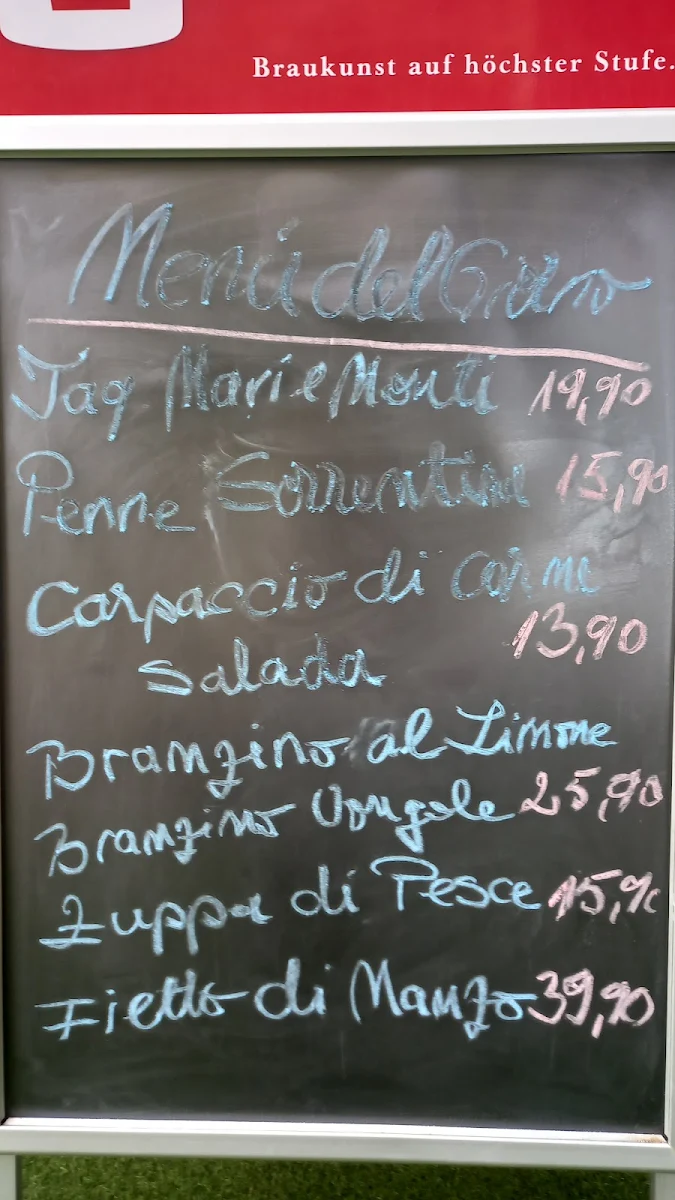 Braukunst auf höchster Stufe.
Menü del Giorno
Tag Mari e Monti 19,90
Penne Sorrentine 15,90
Carpaccio di Carne
Salada 13,90
Branzino al Limone
Branzino Vongole 25,90
Zuppa di Pesce 15,90
Fietto di Manzo 39,90